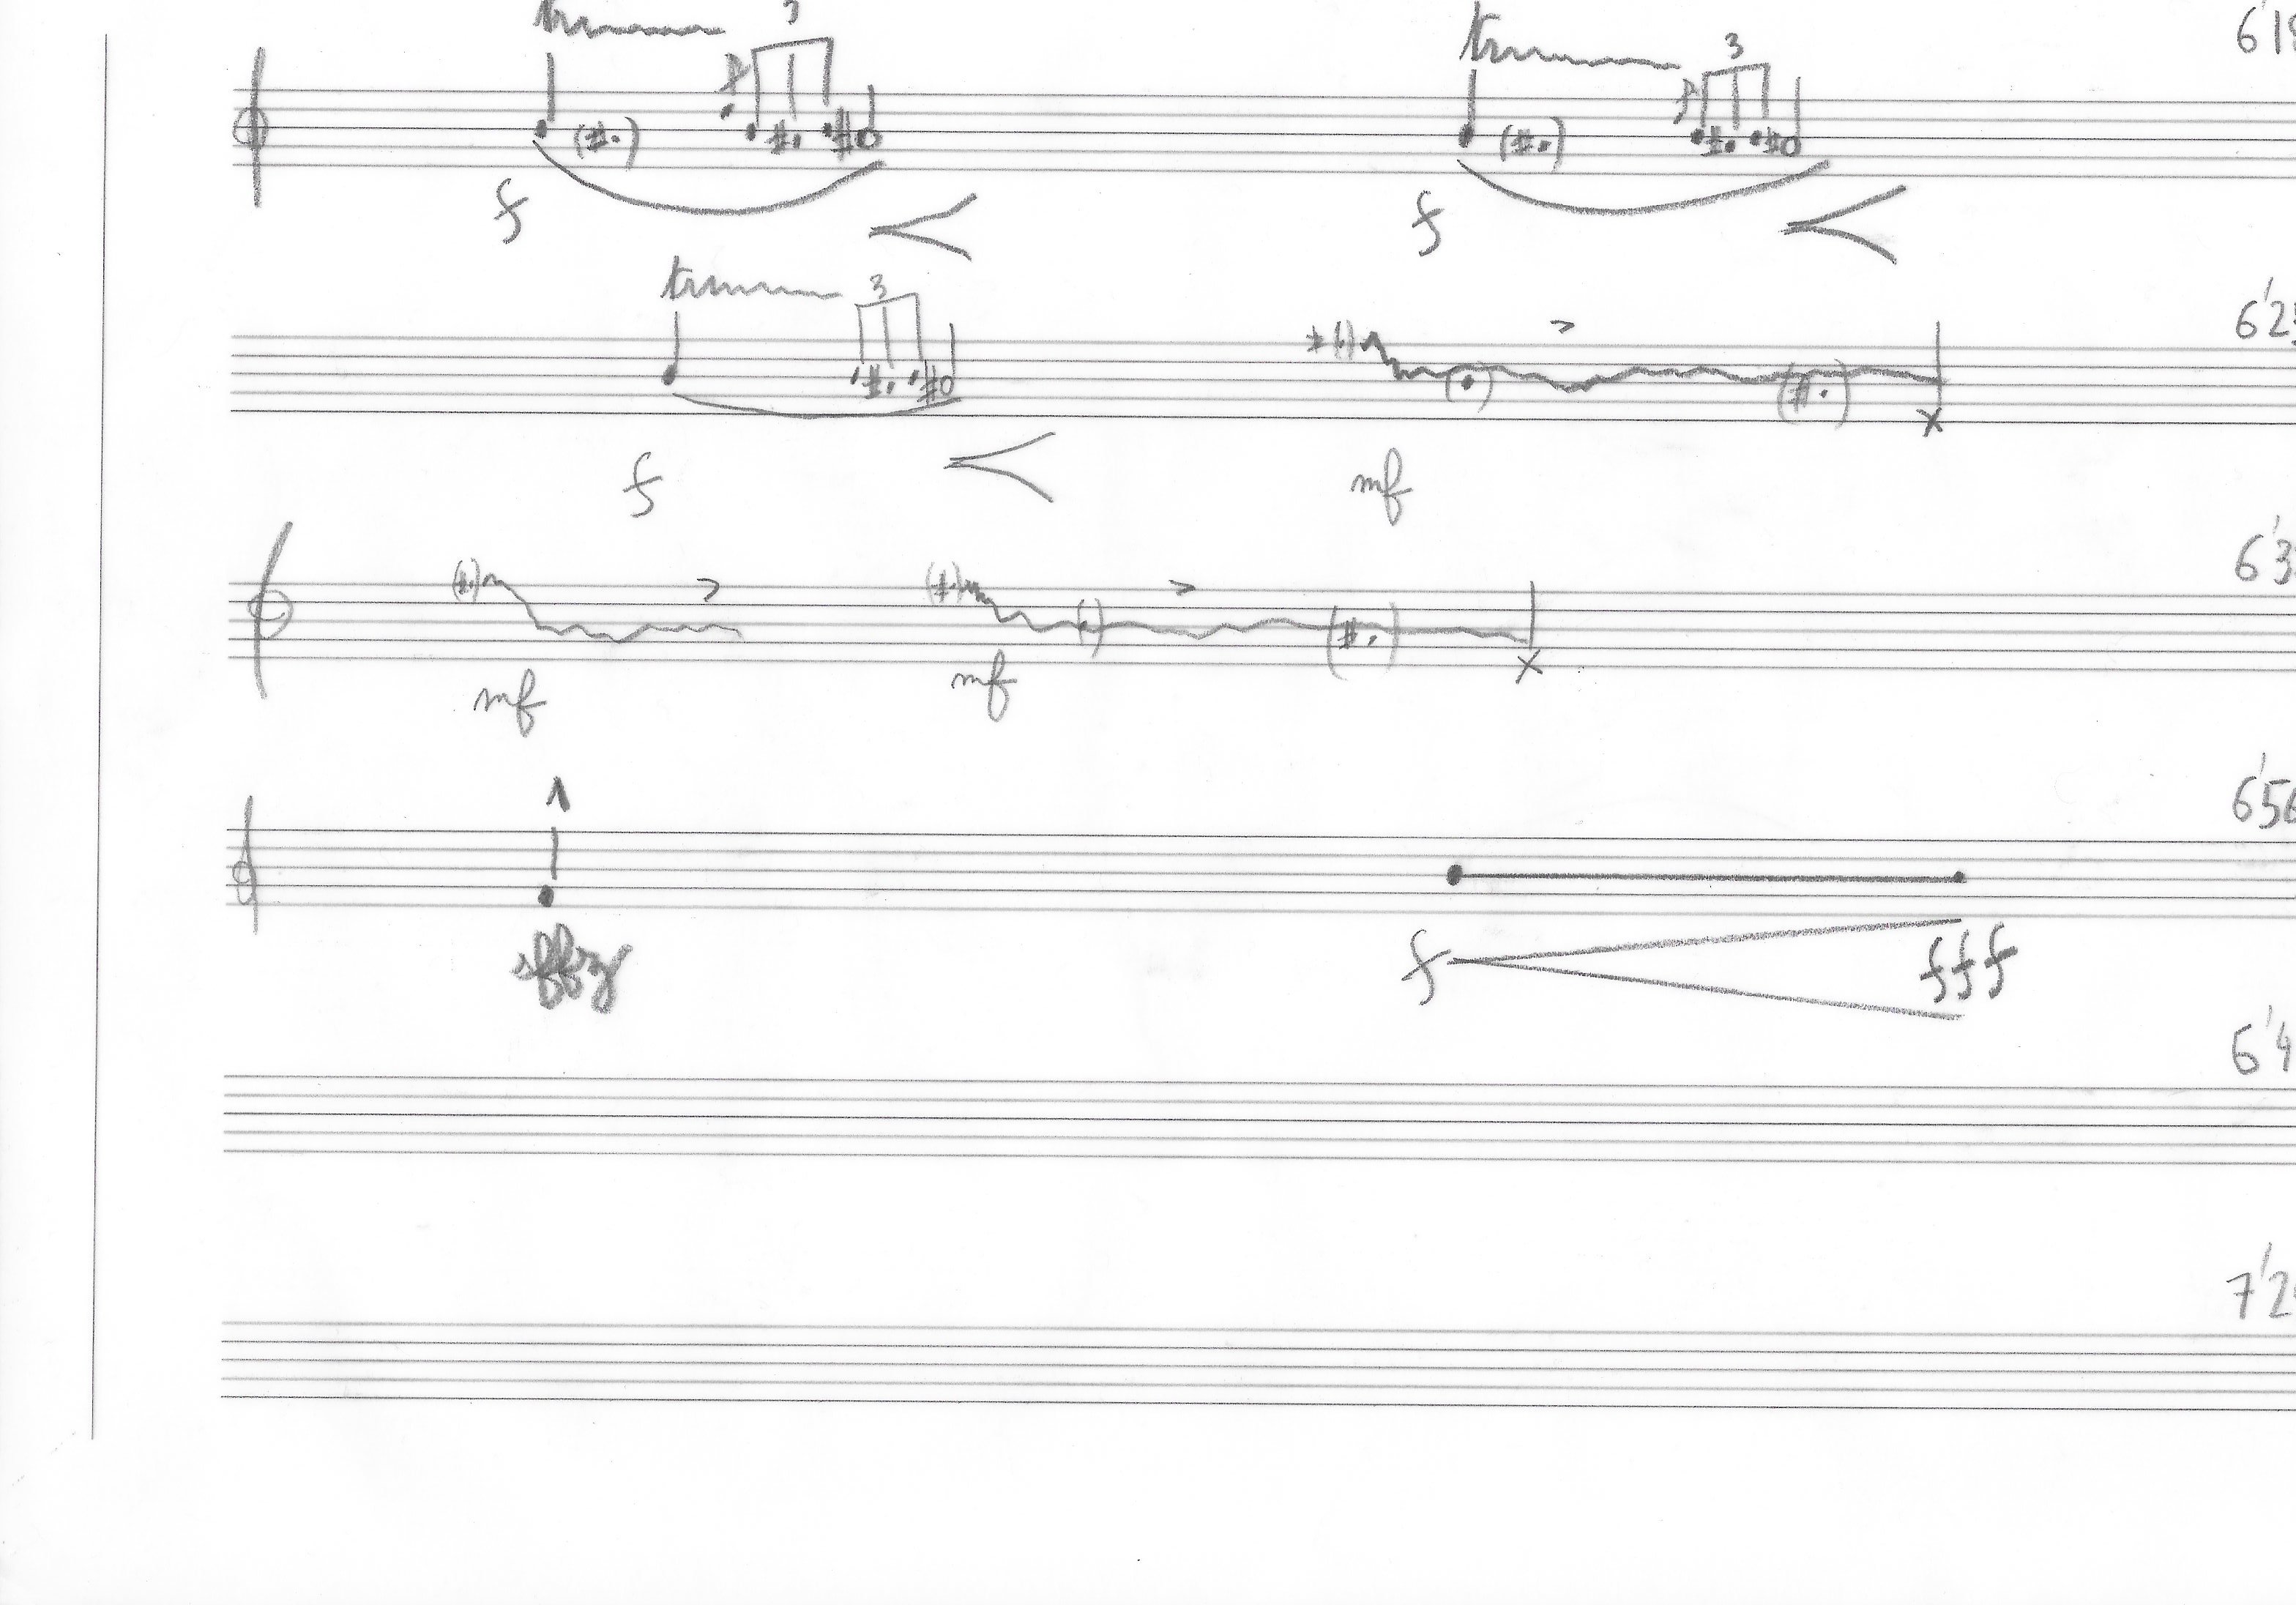 tr 3 tr 3 6'1
f f
tr 3 6'2
f mf
6'3
mf mf
6'56
sffz f fff
6'4
7'2